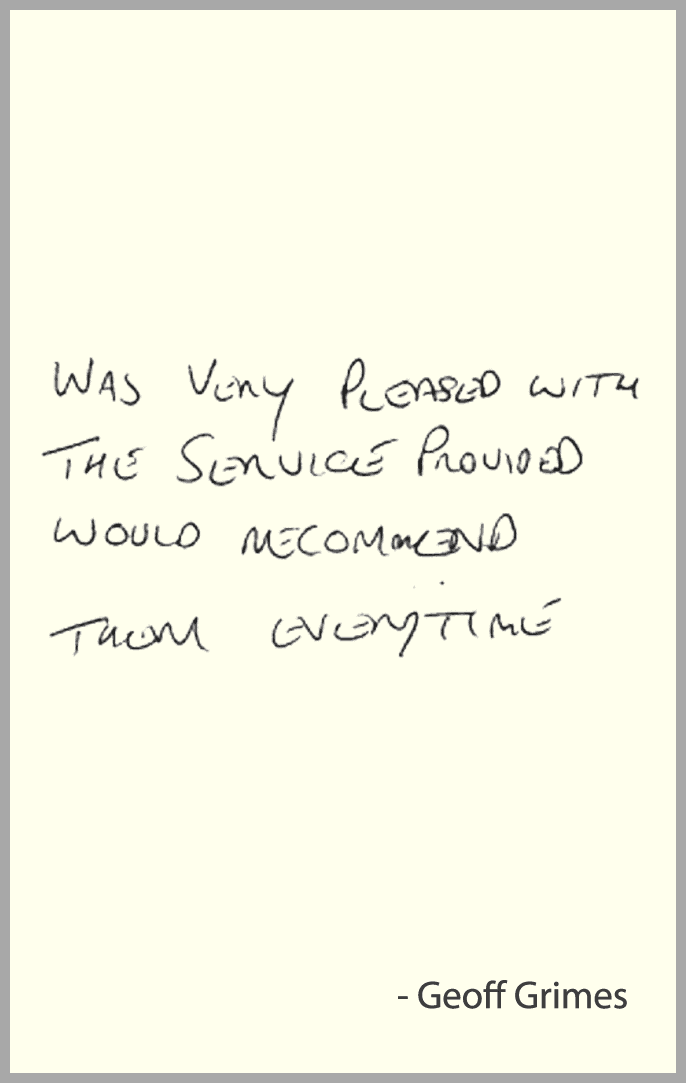 WAS VERY PLEASED WITH
THE SERVICE PROVIDED
WOULD RECOMMEND
THEM EVERYTIME
- Geoff Grimes